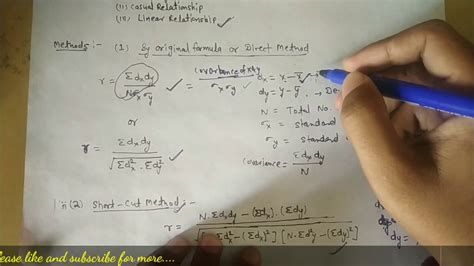 (ii) Casual Relationship
(iii) Linear Relationship
Methods:- (1) by original formula or Direct Method
r = Σdxdy / Nσxσy = Covariance of x & y / σxσy
dx = x - x̄
dy = y - ȳ → De
N = Total No.
or
σx = standard
r = Σdxdy / √Σd²x . Σd²y
σy = Standard
Covariance = Σdxdy / N
(2) Short-Cut Method:-
r = N.Σdxdy - (Σdx).(Σdy) / √[N.Σd²x - (Σdx)²] [N.Σd²y - (Σdy)²]
ease like and subscribe for more....